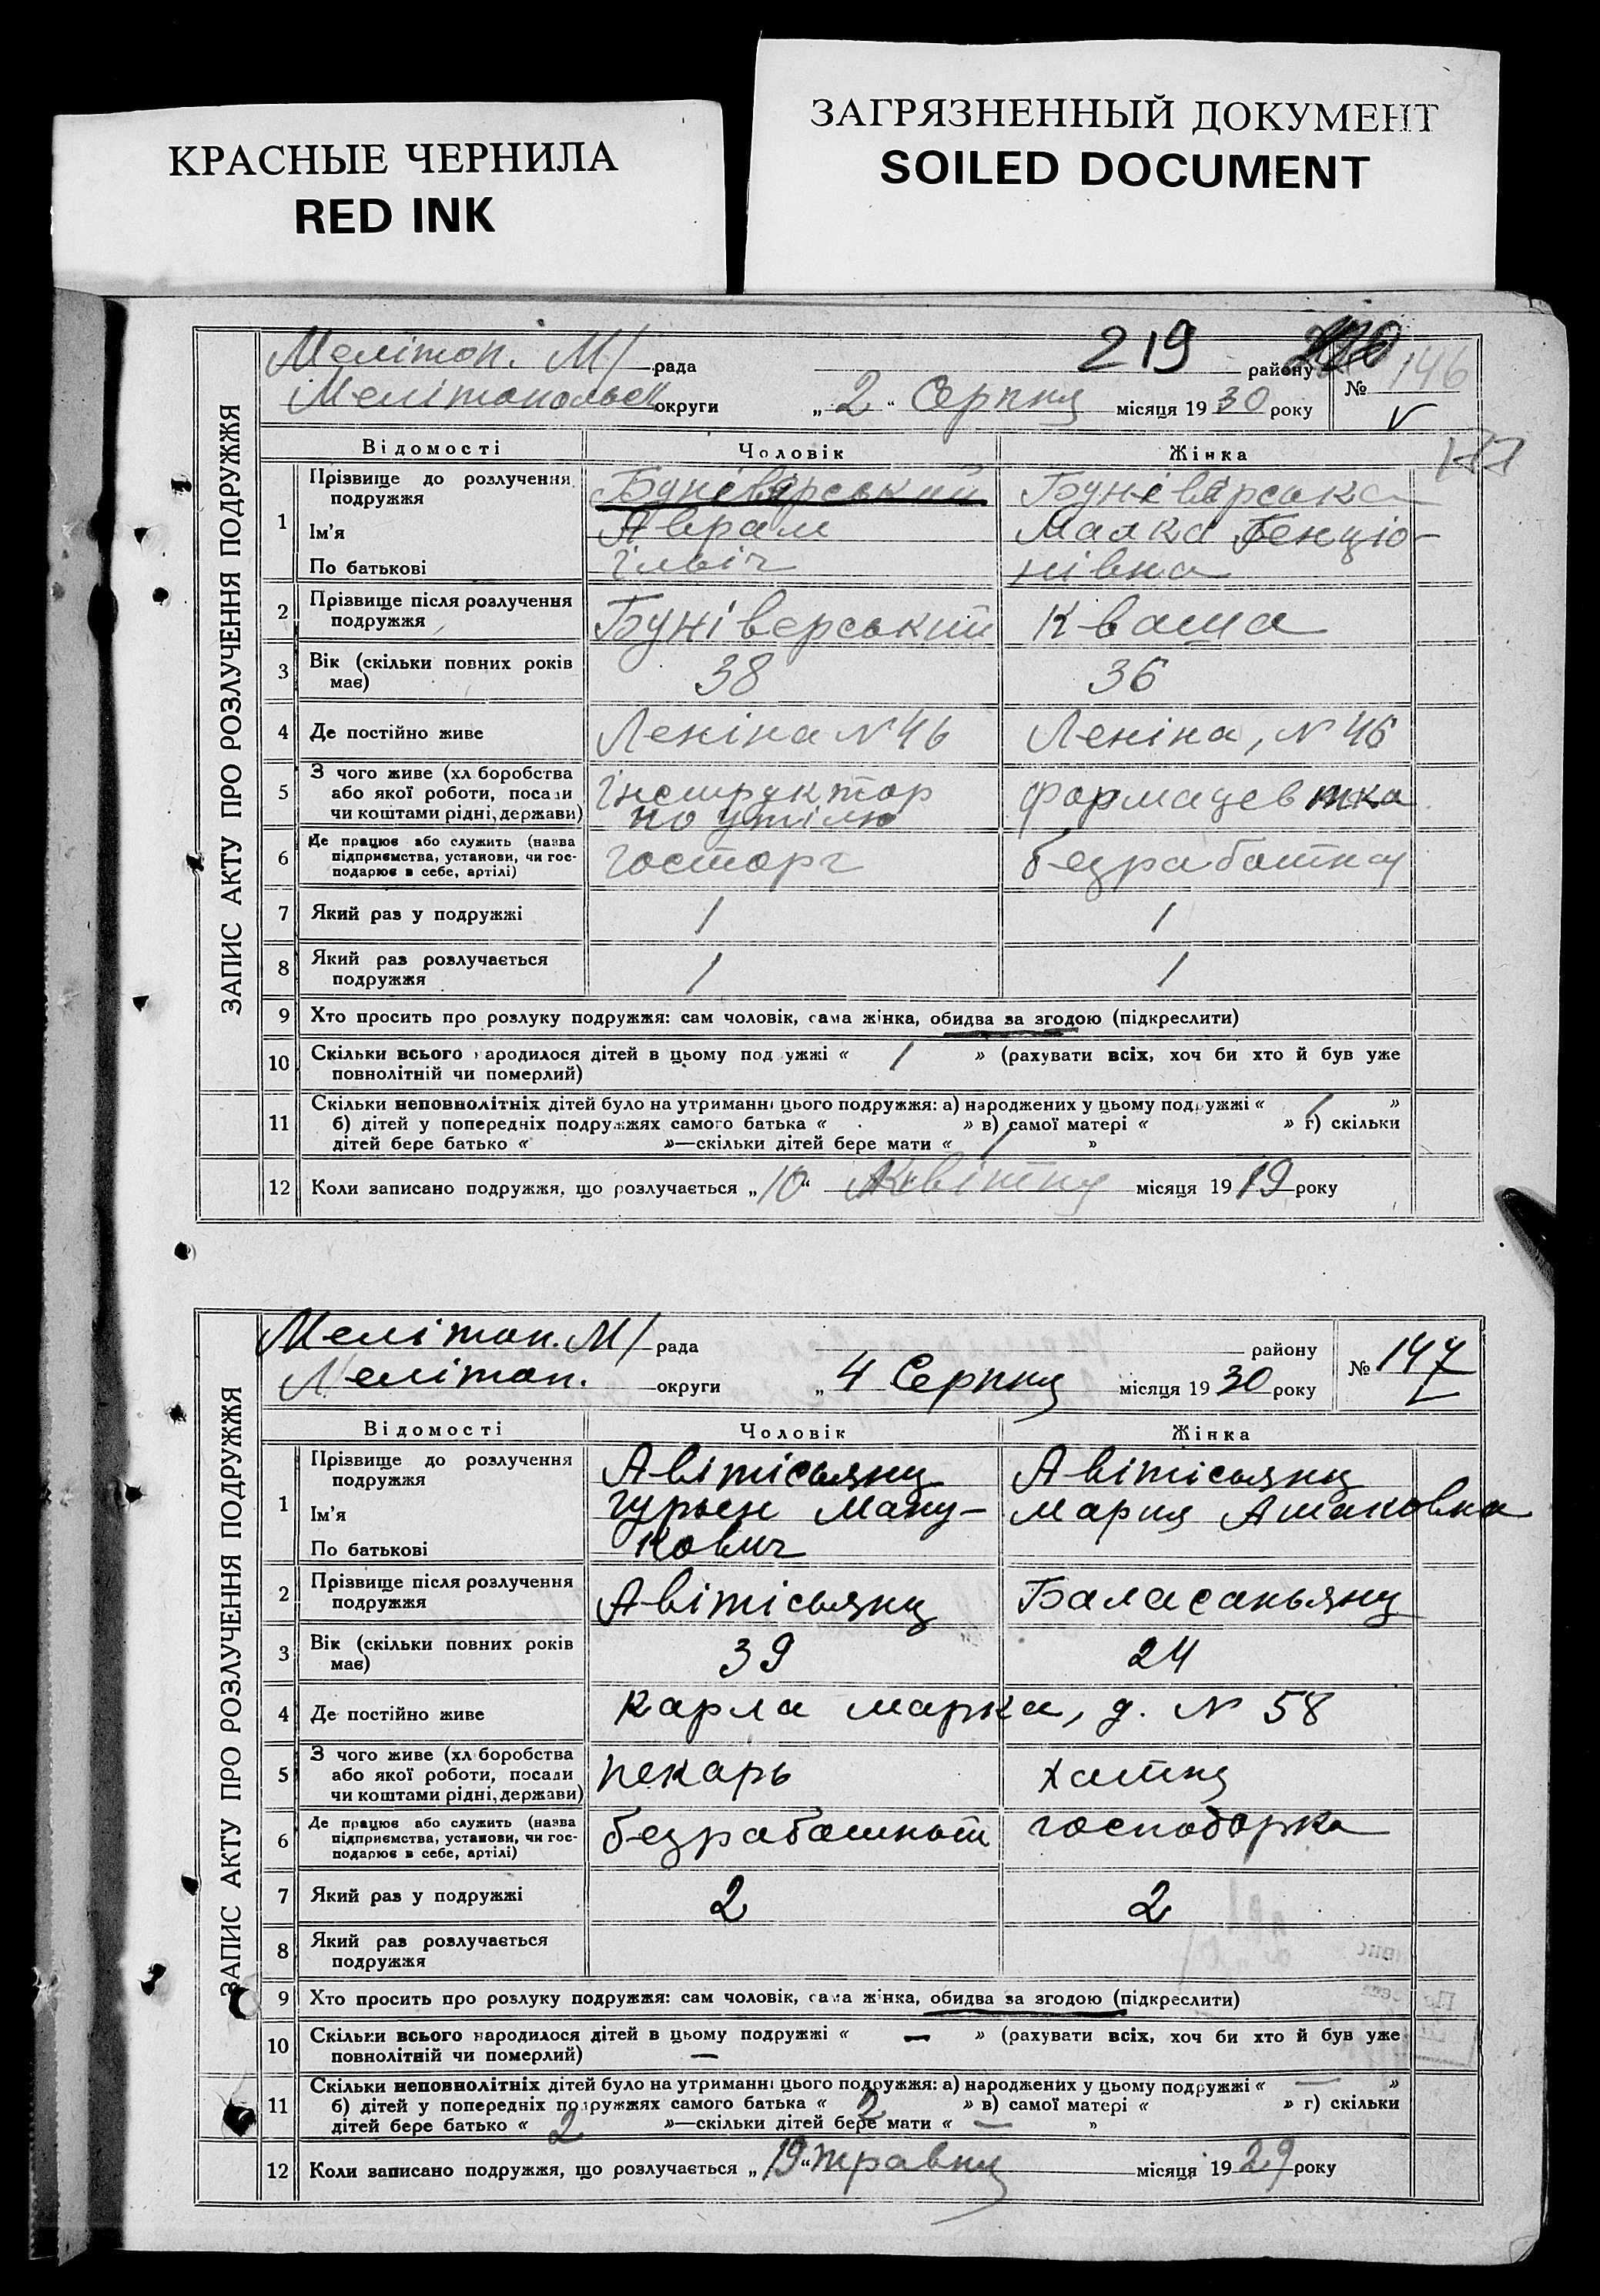 КРАСНЫЕ ЧЕРНИЛА
RED INK
ЗАГРЯЗНЕННЫЙ ДОКУМЕНТ
SOILED DOCUMENT
ЗАПИС АКТУ ПРО РОЗЛУЧЕННЯ ПОДРУЖЖЯ
Меліто​п. М/ рада 219 району
Мелітопольськ округи „ 2 “ Серпня місяця 1930 року № 146
Відомості Чоловік Жінка
1 Прізвище до розлучення подружжя Буніверський Буніверська
Ім'я Аврам Малка Бенціо-
По батькові Ільіч нівна
2 Прізвище після розлучення
подружжя Буніверський Кваша
3 Вік (скільки повних років
має) 38 36
4 Де постійно живе Леніна N 46 Леніна, N 46
5 З чого живе (хліборобства
або якої роботи, посади
чи коштами рідні, держави) Інструктор по утілю фармацевтка
6 Де працює або служить (назва
підприємства, установи, чи гос-
подарює в себе, артілі) Госторг безработня
7 Який раз у подружжі 1 1
8 Який раз розлучається
подружжя 1 1
9 Хто просить про розлуку подружжя: сам чоловік, сама жінка, обидва за згодою (підкреслити)
10 Скільки всього народилося дітей в цьому подружжі « 1 » (рахувати всіх, хоч би хто й був уже
повнолітній чи померлий)
11 Скільки неповнолітніх дітей було на утриманні цього подружжя: а) народжених у цьому подружжі « 1 »
б) дітей у попередніх подружжях самого батька « » в) самої матері « » г) скільки
дітей бере батько « »—скільки дітей бере мати « 1 »
12 Коли записано подружжя, що розлучається „ 10 “ Квітня місяця 1919 року
ЗАПИС АКТУ ПРО РОЗЛУЧЕННЯ ПОДРУЖЖЯ
Мелітоп. М/ рада району
Мелітоп. округи „ 4 Серпня місяця 1930 року № 147
Відомості Чоловік Жінка
1 Прізвище до розлучення
подружжя Авітісьянц Авітісьянц
Ім'я Гурьен Ману- Мария Атаковна
По батькові кович
2 Прізвище після розлучення
подружжя Авітісьянц Баласаньянц
3 Вік (скільки повних років
має) 39 24
4 Де постійно живе Карла Маркса, д. N 58
5 З чого живе (хліборобства
або якої роботи, посади
чи коштами рідні, держави) пекарь хатня
6 Де працює або служить (назва
підприємства, установи, чи гос-
подарює в себе, артілі) безработный господарка
7 Який раз у подружжі 2 2
8 Який раз розлучається
подружжя
9 Хто просить про розлуку подружжя: сам чоловік, сама жінка, обидва за згодою (підкреслити)
10 Скільки всього народилося дітей в цьому подружжі « — » (рахувати всіх, хоч би хто й був уже
повнолітній чи померлий) —
11 Скільки неповнолітніх дітей було на утриманні цього подружжя: а) народжених у цьому подружжі « — »
б) дітей у попередніх подружжях самого батька « 2 » в) самої матері « » г) скільки
дітей бере батько « 2 »—скільки дітей бере мати « — »
12 Коли записано подружжя, що розлучається „ 19 “ травня місяця 1929 року